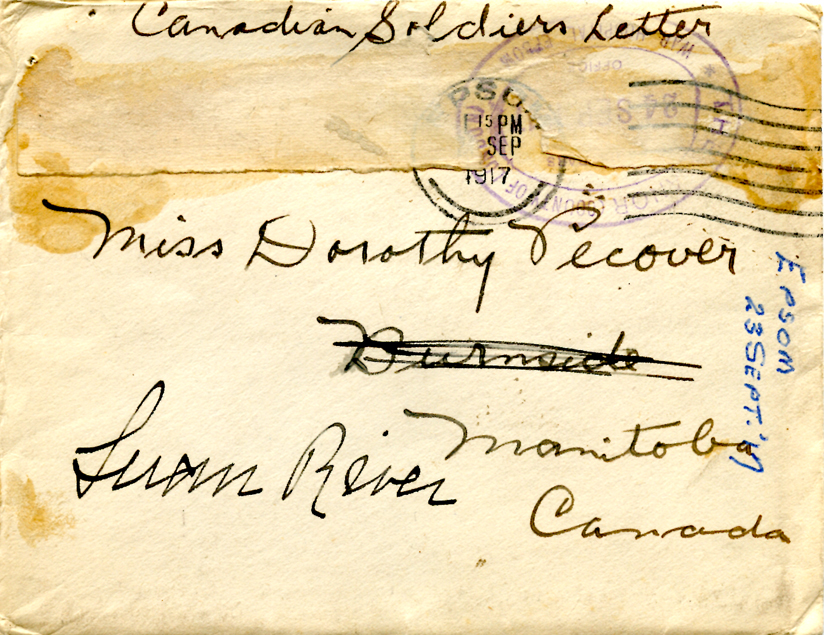 Canadian Soldiers Letter
PSO
15 PM
SEP
1917
24 S
COUNTY OF
Miss Dorothy Pecover
Burnside
Manitoba
Swan River
Canada
EPSOM
23 SEPT. '17